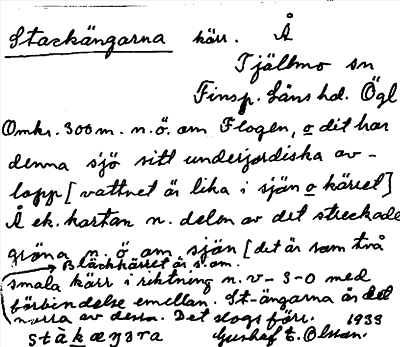 Stackängarna kärr. Å
Tjällmo sn
Finsp. Läns hd. Ögl
Omkr. 300 m. n.ö. om Flogen, o dit har
denna sjö sitt underjordiska av-
lopp [vattnet är lika i sjön o kärret]
Å ek. kartan n. delen av det streckade
gröna n. ö om sjön [det är som två
Bläckkärret är s. om.
smala kärr i riktning n.v-s-o med
förbindelse emellan. St-ängarna är det
norra av dessa. Det slogs förr. 1933
Gustaf E. Olsson.